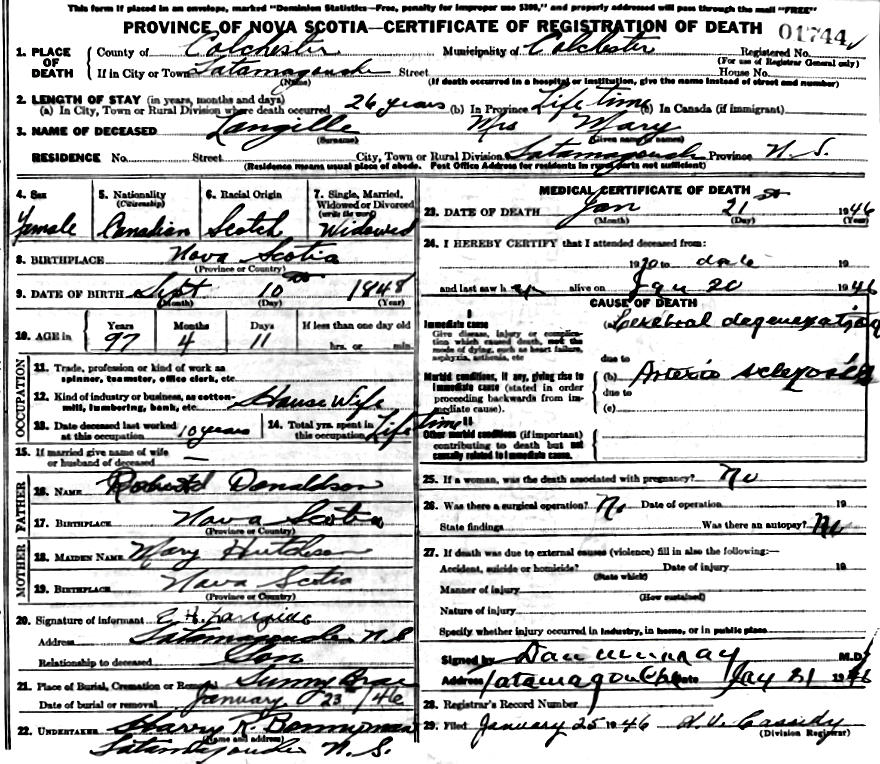 This form if placed in an envelope, marked "Dominion Statistics—Free, penalty for improper use $300," and properly addressed will pass through the mail "FREE"
PROVINCE OF NOVA SCOTIA—CERTIFICATE OF REGISTRATION OF DEATH
01744
1. PLACE OF DEATH
County of Colchester Municipality of Colchester Registered No.
(For use of Registrar General only)
If in City or Town Tatamagouche Street House No.
(Name) (If death occurred in a hospital or institution, give the name instead of street and number)
2. LENGTH OF STAY (in years, months and days)
(a) In City, Town or Rural Division where death occurred 26 years (b) In Province Life time (c) In Canada (if immigrant)
3. NAME OF DECEASED Langille Mrs Mary
(Surname) (Given name or names)
RESIDENCE No. Street City, Town or Rural Division Tatamagouche Province N. S.
(Residence means usual place of abode. Post Office Address for residents in rural parts not sufficient)
4. Sex Female
5. Nationality (Citizenship) Canadian
6. Racial Origin Scotch
7. Single, Married, Widowed or Divorced (write the word) Widowed
8. BIRTHPLACE Nova Scotia
(Province or Country)
9. DATE OF BIRTH Sept 10 1848
(Month) (Day) (Year)
10. AGE in Years 97 Months 4 Days 11 If less than one day old hrs. or min.
OCCUPATION
11. Trade, profession or kind of work as spinner, teamster, office clerk, etc.
12. Kind of industry or business, as cotton-mill, lumbering, bank, etc. House Wife
13. Date deceased last worked at this occupation 10 years
14. Total yrs. spent in this occupation Life time
15. If married give name of wife or husband of deceased —
FATHER
16. NAME Donaldson
17. BIRTHPLACE Nova Scotia
(Province or Country)
MOTHER
18. MAIDEN NAME Mary Hutchison
19. BIRTHPLACE Nova Scotia
(Province or Country)
20. Signature of informant E H Langille
Address Tatamagouche N S
Relationship to deceased Son
21. Place of Burial, Cremation or Removal Sunny Brae
Date of burial or removal January 23 /46
22. UNDERTAKER Harry R. Bonnyman
(Name and address)
Tatamagouche N. S.
MEDICAL CERTIFICATE OF DEATH
23. DATE OF DEATH Jan 21st 1946
(Month) (Day) (Year)
24. I HEREBY CERTIFY that I attended deceased from:
19 to date 19
and last saw h er alive on Jan 20 1946
CAUSE OF DEATH
I
Immediate cause
Give disease, injury or complication which caused death, not the mode of dying, such as heart failure, asphyxia, asthenia, etc
(a) Cerebral degeneration
due to
Morbid conditions, if any, giving rise to immediate cause (stated in order proceeding backwards from immediate cause).
(b) Arterio sclerosis
due to
(c)
II
Other morbid conditions (if important) contributing to death but not causally related to immediate cause.
25. If a woman, was the death associated with pregnancy? No
26. Was there a surgical operation? No Date of operation 19
State findings Was there an autopsy? No
27. If death was due to external causes (violence) fill in also the following:—
Accident, suicide or homicide? Date of injury 19
(State which)
Manner of injury
(How sustained)
Nature of injury
Specify whether injury occurred in industry, in home, or in public place
Signed by Dan Murray M.D.
Address Tatamagouche Date Jan 21 1946
28. Registrar's Record Number
29. Filed January 25 1946 Cassidy
(Division Registrar)